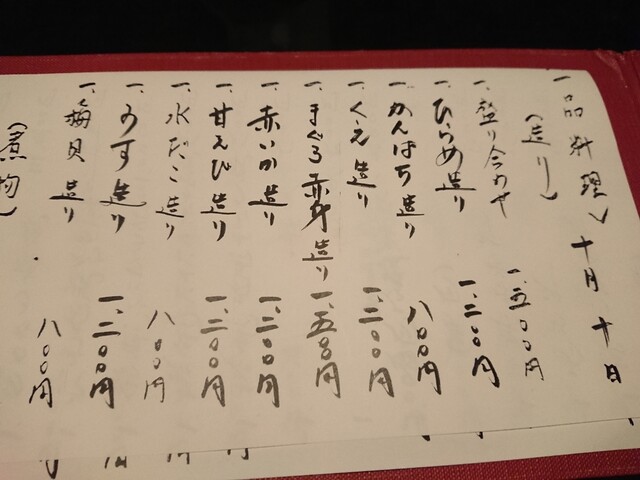 一品料理 十月十日
(造り)
一、盛り合わせ 一、五〇〇円
一、ひらめ造り 一、二〇〇円
一、かんぱち造り 八〇〇円
一、くえ造り 一、二〇〇円
一、まぐろ赤身造り 一、五〇〇円
一、赤いか造り 一、二〇〇円
一、甘えび造り 一、二〇〇円
一、水だこ造り 八〇〇円
一、うす造り 一、二〇〇円
一、梅貝造り 八〇〇円
(煮物)